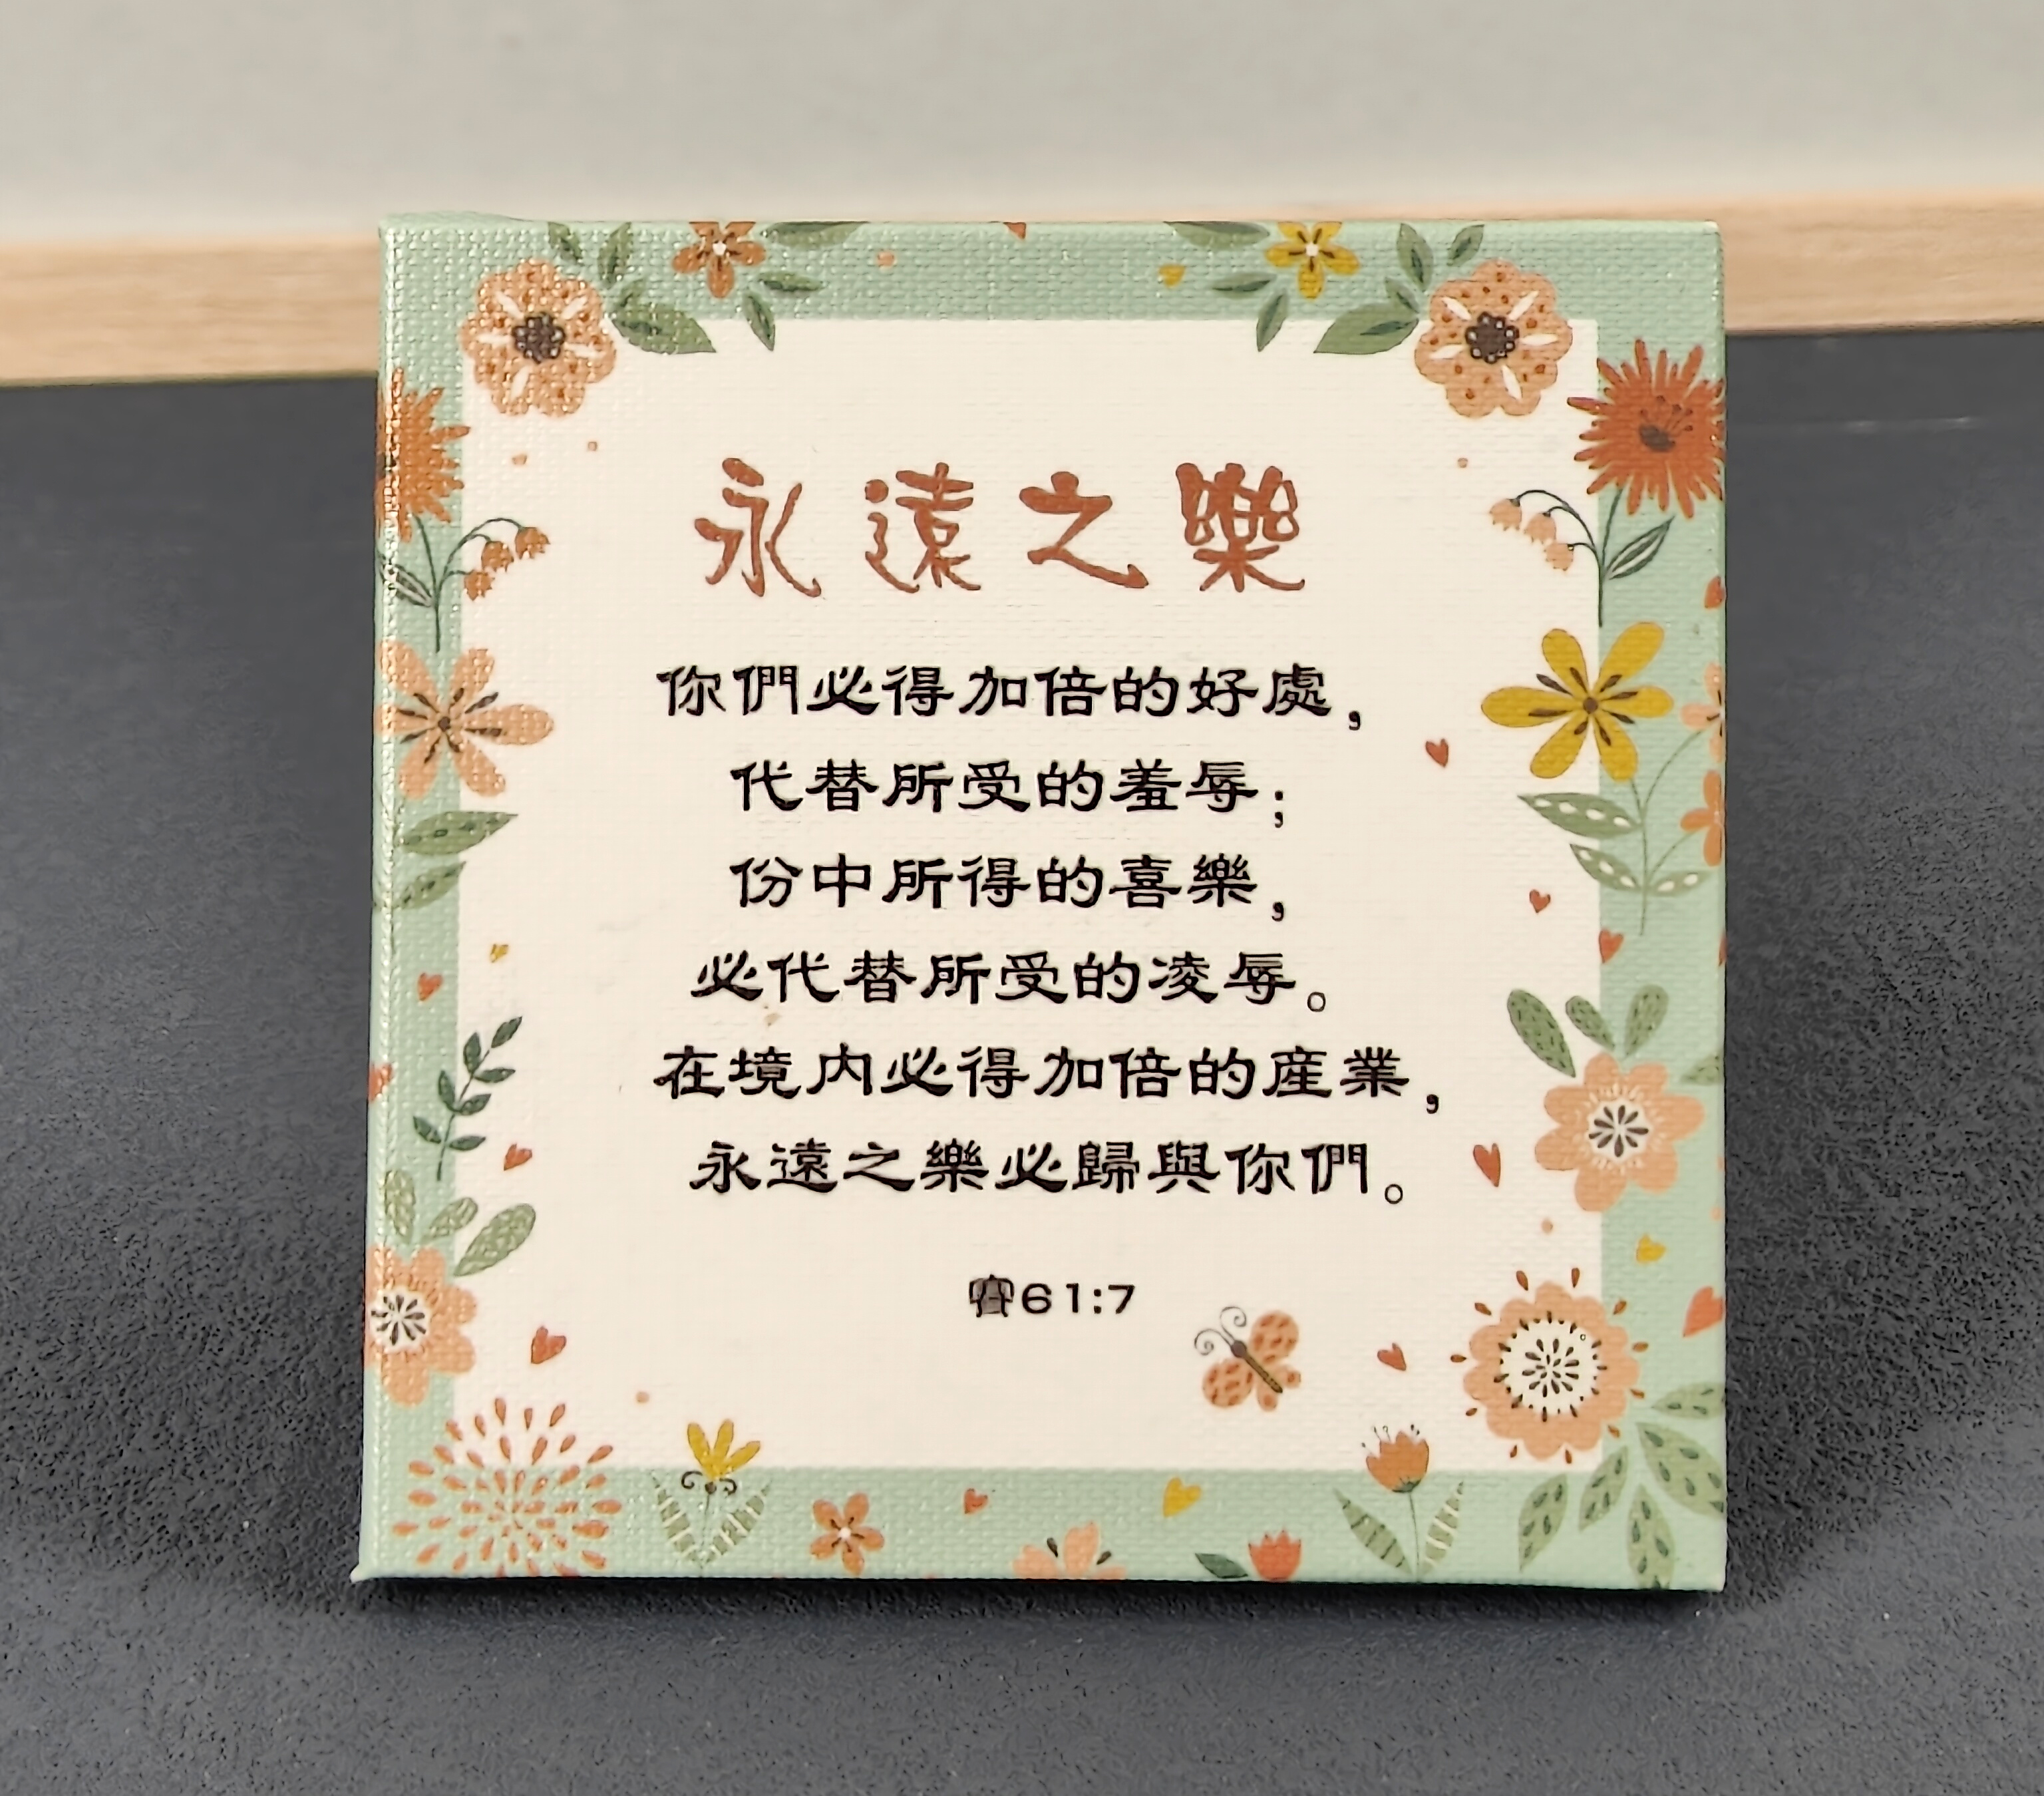 永遠之樂
你們必得加倍的好處，
代替所受的羞辱；
份中所得的喜樂，
必代替所受的凌辱。
在境內必得加倍的產業，
永遠之樂必歸與你們。
61:7